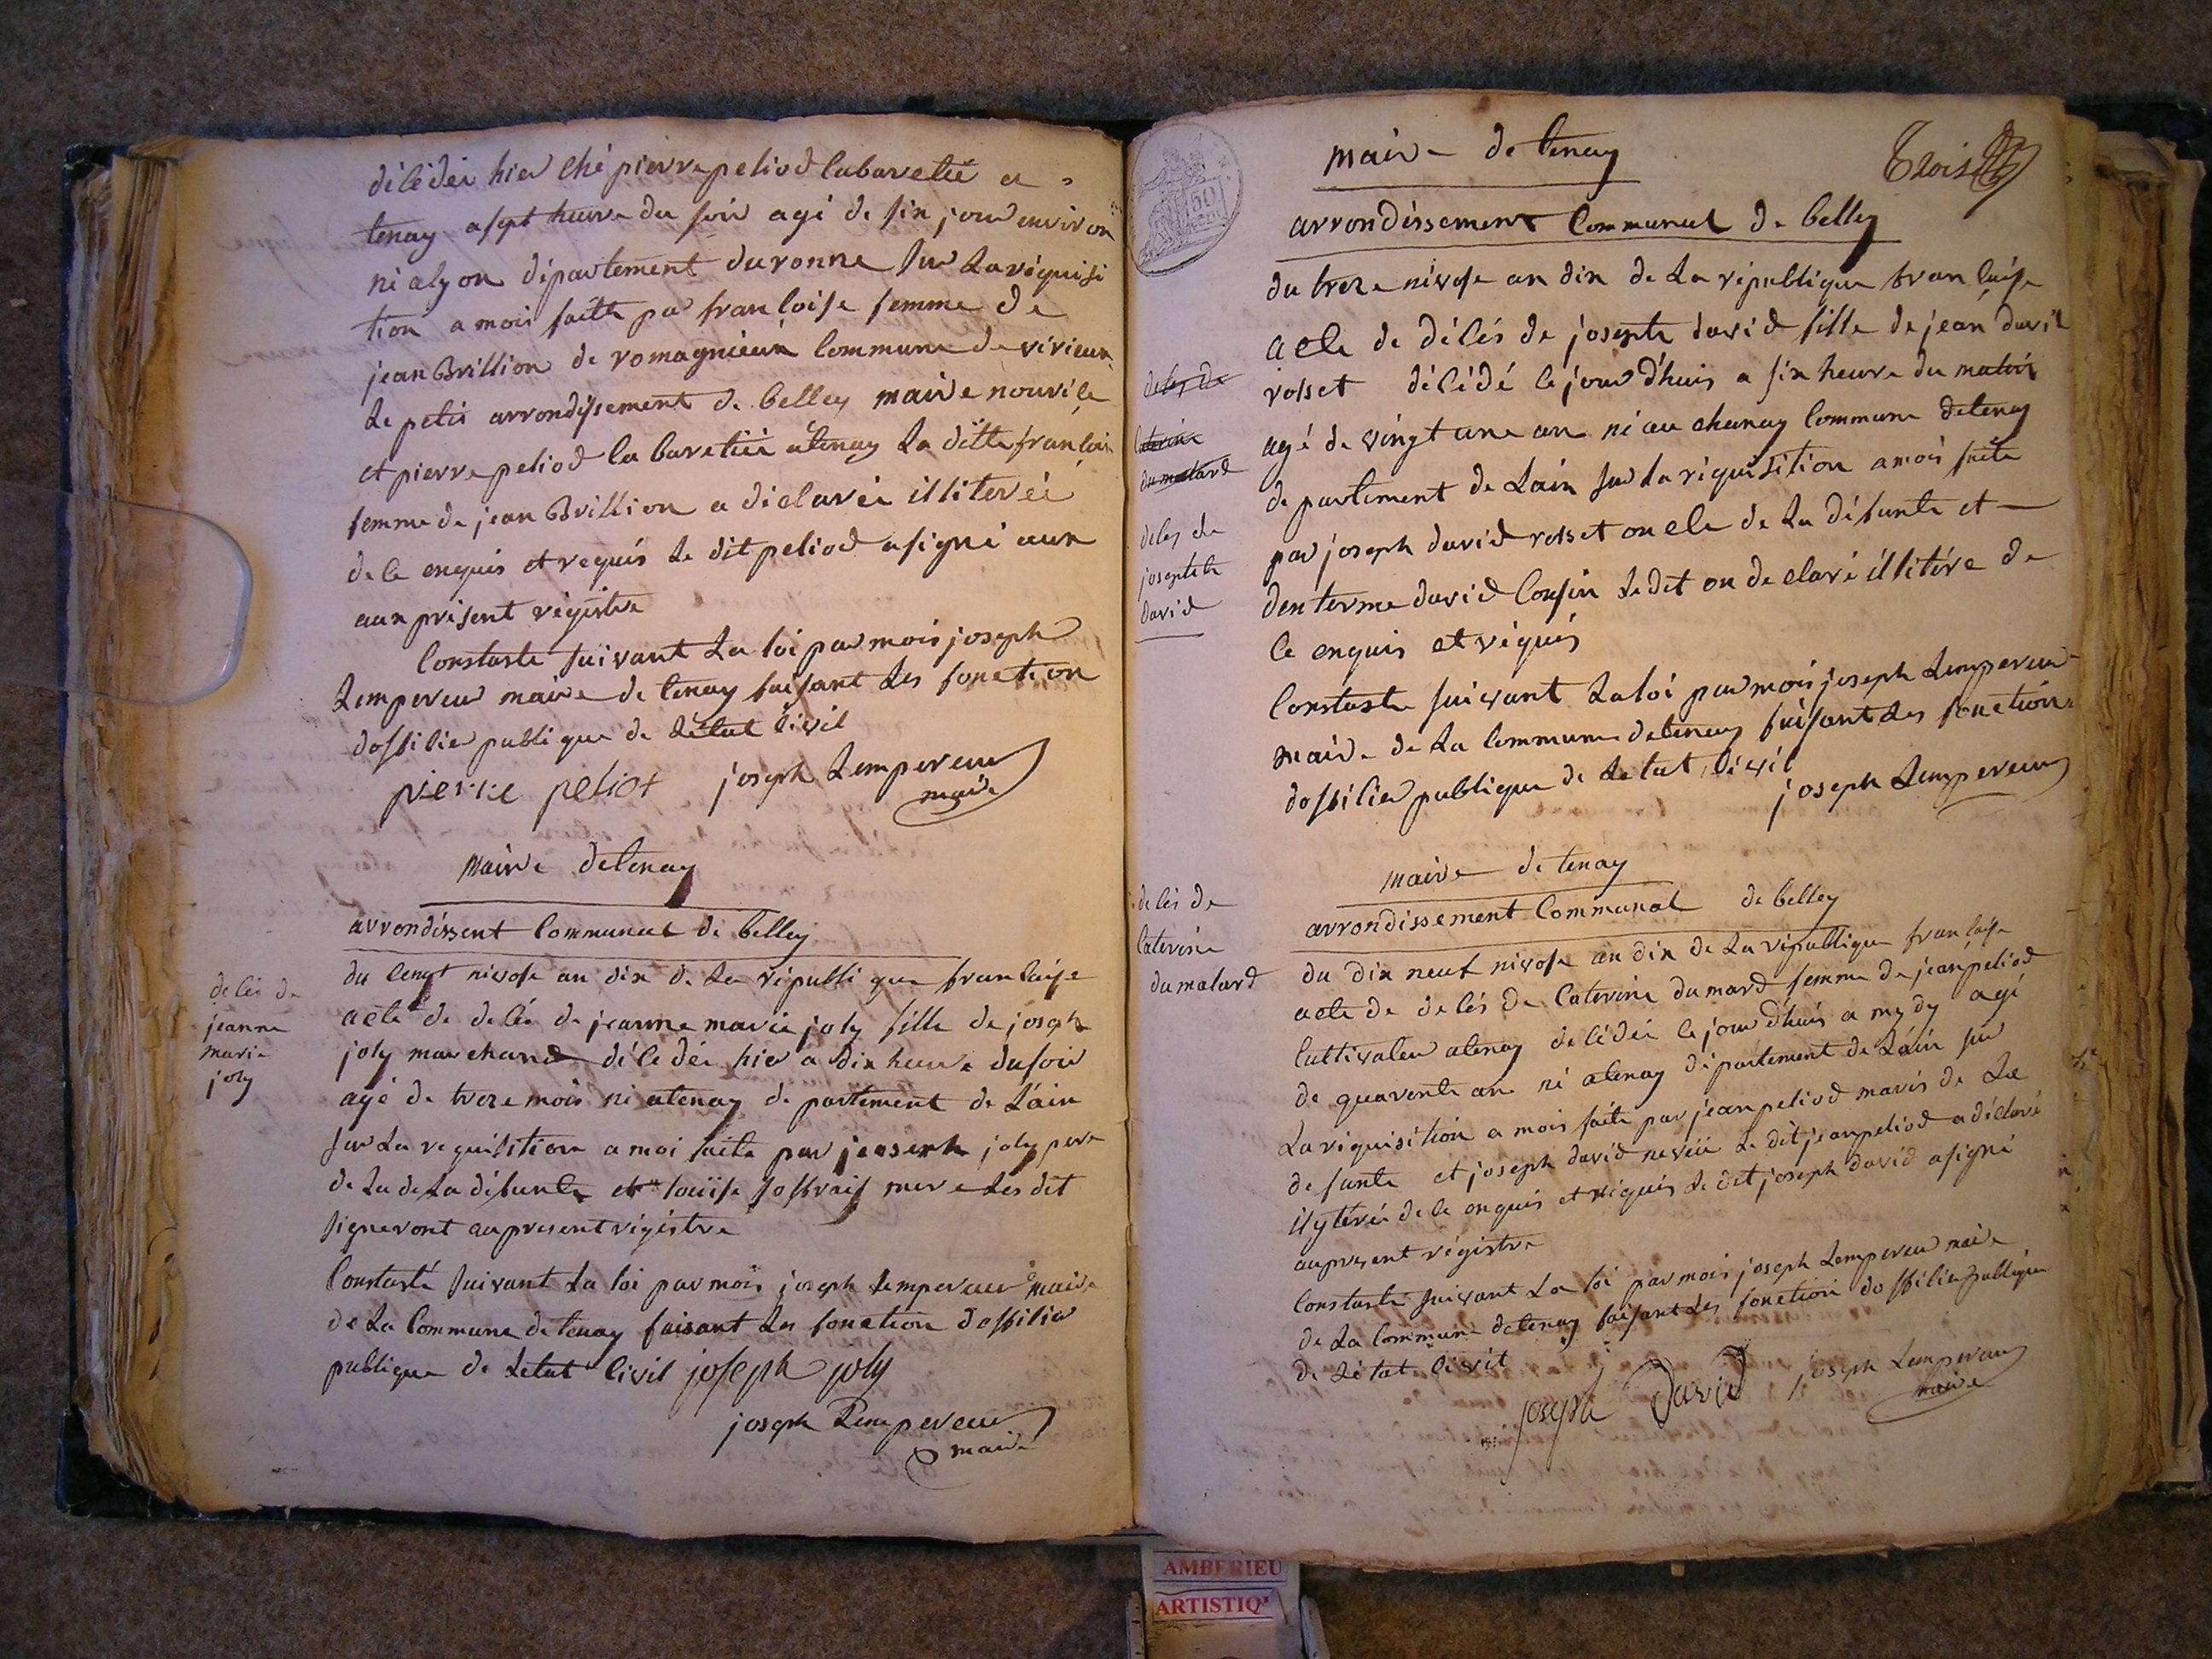 décédéi hier ché pierre peliod cabaretié a
tenay a sept heure du soir agé de six jour environ
né alyon département duronne sur La réquisi
tion a mois faitte par francoise femme de
jean Brillion de romagnieux commune de virieux
Le petit arrondissement de belley mairie nourice
et pierre peliod cabaretiéé atenay La ditte francoise
femme de jean Brillion a déclaréé illiteréé
de ce enquis et requis Le dit peliod a signé aux
aux présent régistre
Constasté suivant La loi par mois joseph
Lempereur maire de tenay faisant Les fonction
dofficier publique de Létat civil
pierre peliot joseph Lempereur
maire
maire detenay
arrondissent Communal de belley
décés de
jeanne
marie
joly
du cenqt nivose an dix de La républi que francaise
acte de décé de jeanne marie joly fille de joseph
joly marchand décédéé hier a dix heure dusoir
agé de treze mois né atenay département de Láin
sur La requisition a moi faite par joeseph joly pere
de La de La défunte et Loüise joffrais mere Les dit
signeront aupresent régistre
Constasté suivant La loi par mois joseph Lempereur maire
de La Commune de tenay faisant Les fonction dofficier
publique de Létat civil joseph joly
joseph Lempereur
maire
maire de tenay
Trois
arrondissement Communal de belley
du treze nivose an dix de La république francaise
acte de décés de josephte david fille de jean david
rosset décédé ce jour d'huis a six heure du matin
agé de vingt une an né au chanay Commune de tenay
département de Lain sur La réquisition a mois faite
par joseph david rosset oncle de La défunte et
denterme david Cousin Ledit on declaré illitére de
ce enquis et réquis
deces de
caterine
dumolard
deces de
josephte
david
Constaste suivant La loi par mois joseph Lempereur
maire de La Commune de tenay faisant Les fonction
dofficier publique de Létat civil
joseph Lempereur
maire de tenay
arrondissement Communal de belley
décés de
Caterine
dumolard
du dix neuf nivose an dix de La république francaise
acte de decés de Caterine dumard femme de jean peliod
Cultivateur atenay décédéé ce jour d'huis a mydy agé
de quarente an né atenay département de Láin sur
La réquisition a mois faite par jean peliod maris de La
defunte et joseph david neveü Le dit jean peliod a déclaré
ilytéréé de ce enquis et réquis Le dit joseph david a signé
aupresent régistre
Constasté suivant La loi par mois joseph Lempereur maire
de La Commune detenay faisant Les fonction dofficier publique
de Létat civil
joseph David joseph Lempereur
maire
AMBERIEU
ARTISTIQ